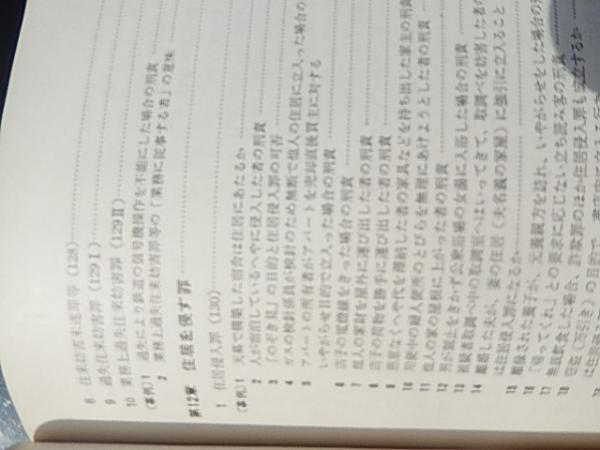 8 往来妨害未遂罪等 (128)
9 過失往来妨害罪 (129Ⅰ)
10 業務上過失往来妨害罪 (129Ⅱ)
(事例) 1 過失により鉄道の信号機操作を不能にした場合の刑責
2 業務上過失往来妨害罪等の「業務に従事する者」の意味
第12章 住居を侵す罪
1 住居侵入罪 (130)
(事例) 1 天幕で構築した宿舎は住居にあたるか
2 人が宿泊しているへやに侵入した者の刑責
3 「のぞき見」の目的と住居侵入罪の可否
4 ガスの検針係員が検針のため無断で他人の住居に立入った場合の
5 アパートの所有者がアパートを売却直後買主に対する
いやがらせ目的で立入った場合の刑責
6 店子の電燈線をきった場合の刑責
7 他人の家財を屋外に運び出した者の刑責
8 店子の荷物を勝手に運び出した者の刑責
9 悪意なくへや代を滞納した者の家具などを持ち出した家主の刑責
10 用便中の婦人便所のとびらを無理にあけようとした者の刑責
11 他人の家の屋根に上がった者の刑責
12 制止をきかず公衆浴場の女湯に入浴した場合の刑責
13 被疑者取調べ中の取調室へはいってきて、取調べを妨害した者の
14 離婚した夫が、妻の住居（夫名義の家屋）に強引に立入ること
は住居侵入罪になるか
15 離縁された養子が、元養親方を訪れ、いやがらせをした場合の
16 「帰ってくれ」との要求に応じない立ち読み客の刑責
17 無銭飲食した場合、詐欺罪のほか住居侵入罪も成立するか
18 窃盗（万引き）の目的で、書店内に立入る行為
は住居侵入